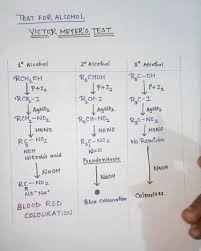 TEST FOR ALCOHOL
VICTOR MEYER'S TEST
1° Alcohol 2° Alcohol 3° Alcohol
RCH₂OH R₂CHOH R₃C-OH
↓P+I₂ ↓P+I₂ ↓P+I₂
RCH₂-I R₂CH-I R₃C-I
↓AgNO₂ ↓AgNO₂ ↓AgNO₂
RCH₂-NO₂ R₂CH-NO₂ R₃C-NO₂
↓HONO ↓HONO ↓HONO
RC-NO₂ R₂C-NO₂ No Reaction
NOH N=O
Nitrolic acid Pseudonitrole
↓NaOH ↓NaOH ↓NaOH
RC-NO₂ Blue colouration Colourless
NO⁻Na⁺
BLOOD RED
COLOURATION